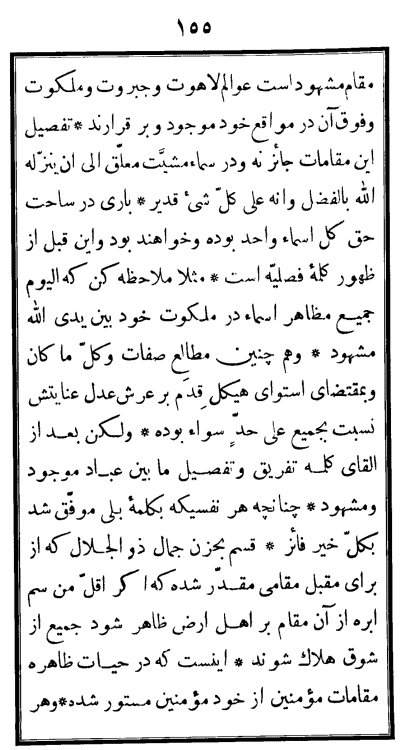 ١٥٥
مقام مشهود است عوالم لاهوت وجبروت وملكوت
وفوق آن در مواقع خود موجود و بر قرارند * تفصيل
اين مقامات جائز نه ودر سماء مشيَّت معلّق الى ان ينزّله
الله بالفضل وانه على كلّ شىء قدير * بارى در ساحت
حق كل اسماء واحد بوده وخواهند بود واين قبل از
ظهور كلمهٔ فصليّه است * مثلا ملاحظه كن كه اليوم
جميع مظاهر اسماء در ملكوت خود بين يدى الله
مشهود * وهم چنين مطالع صفات وكلّ ما كان
وبمقتضاى استواى هيكل قِدَم بر عرش عدل عنايتش
نسبت بجميع على حدٍّ سواء بوده * ولكن بعد از
القاى كلمه تفريق وتفصيل ما بين عباد موجود
ومشهود * چنانچه هر نفسيكه بكلمهٔ بلى موفّق شد
بكلّ خير فائز * قسم بحزن جمال ذو الجلال كه از
براى مقبل مقامى مقدّر شده كه اكر اقلّ من سم
ابره از آن مقام بر اهل ارض ظاهر شود جميع از
شوق هلاك شوند * اينست كه در حيات ظاهره
مقامات مؤمنين از خود مؤمنين مستور شده * وهر